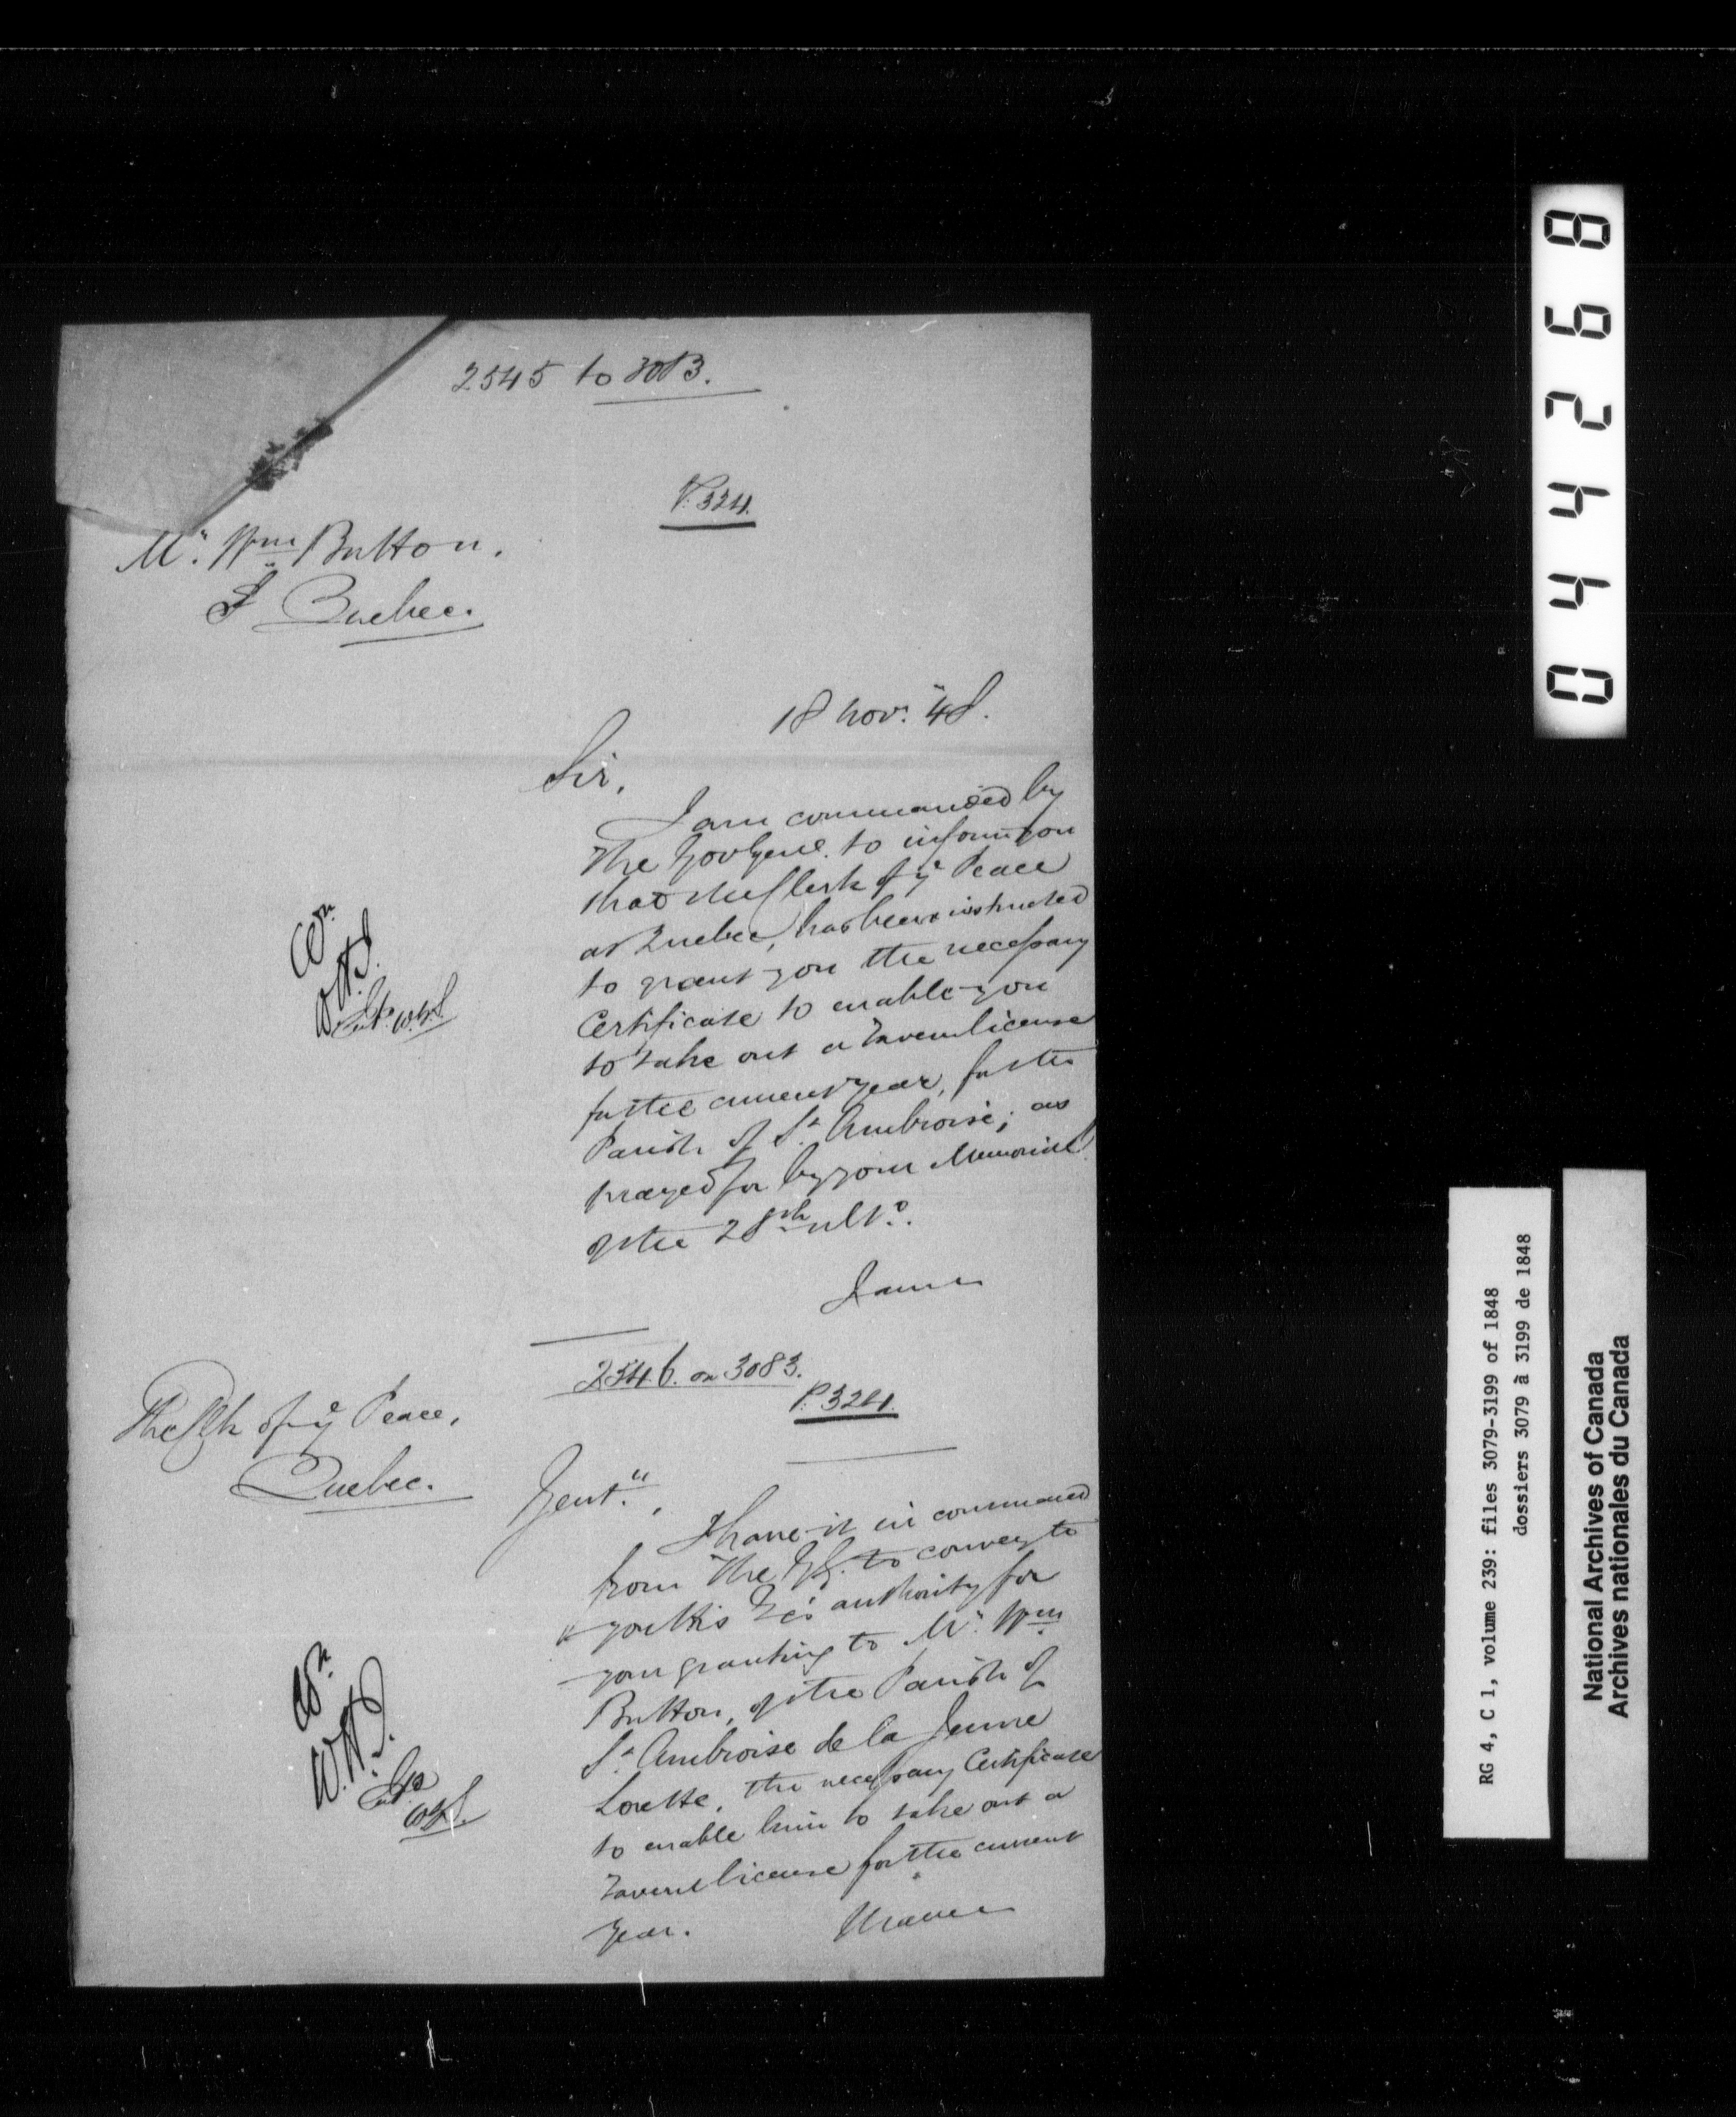 2545 to 3083.
P. 324.
Mr. Wm Button.
Quebec.
18 Nov. 48.
Sir,
I am commanded by
the Gov Genl. to inform you
that the Clerk of ye Peace
at Quebec, has been instructed
to grant you the necessary
Certificate to enable you
to take out a Tavern license
for the current year, for the
Parish of St. Ambroise, as
prayed for by your Memorial
of the 28th ulto.
I am
2546. on 3083.
P. 324.
The Clk of ye Peace,
Quebec.
Gentn.,
I have it in command
from The GG. to convey to
you His Ex's authority for
your granting to Mr. Wm
Button, of the Parish of
St. Ambroise de la Jeune
Lorette, the necessary Certificate
to enable him to take out a
Tavern license for the current
year.
I have
044268
RG 4, C 1, volume 239: files 3079-3199 of 1848
dossiers 3079 à 3199 de 1848
National Archives of Canada
Archives nationales du Canada